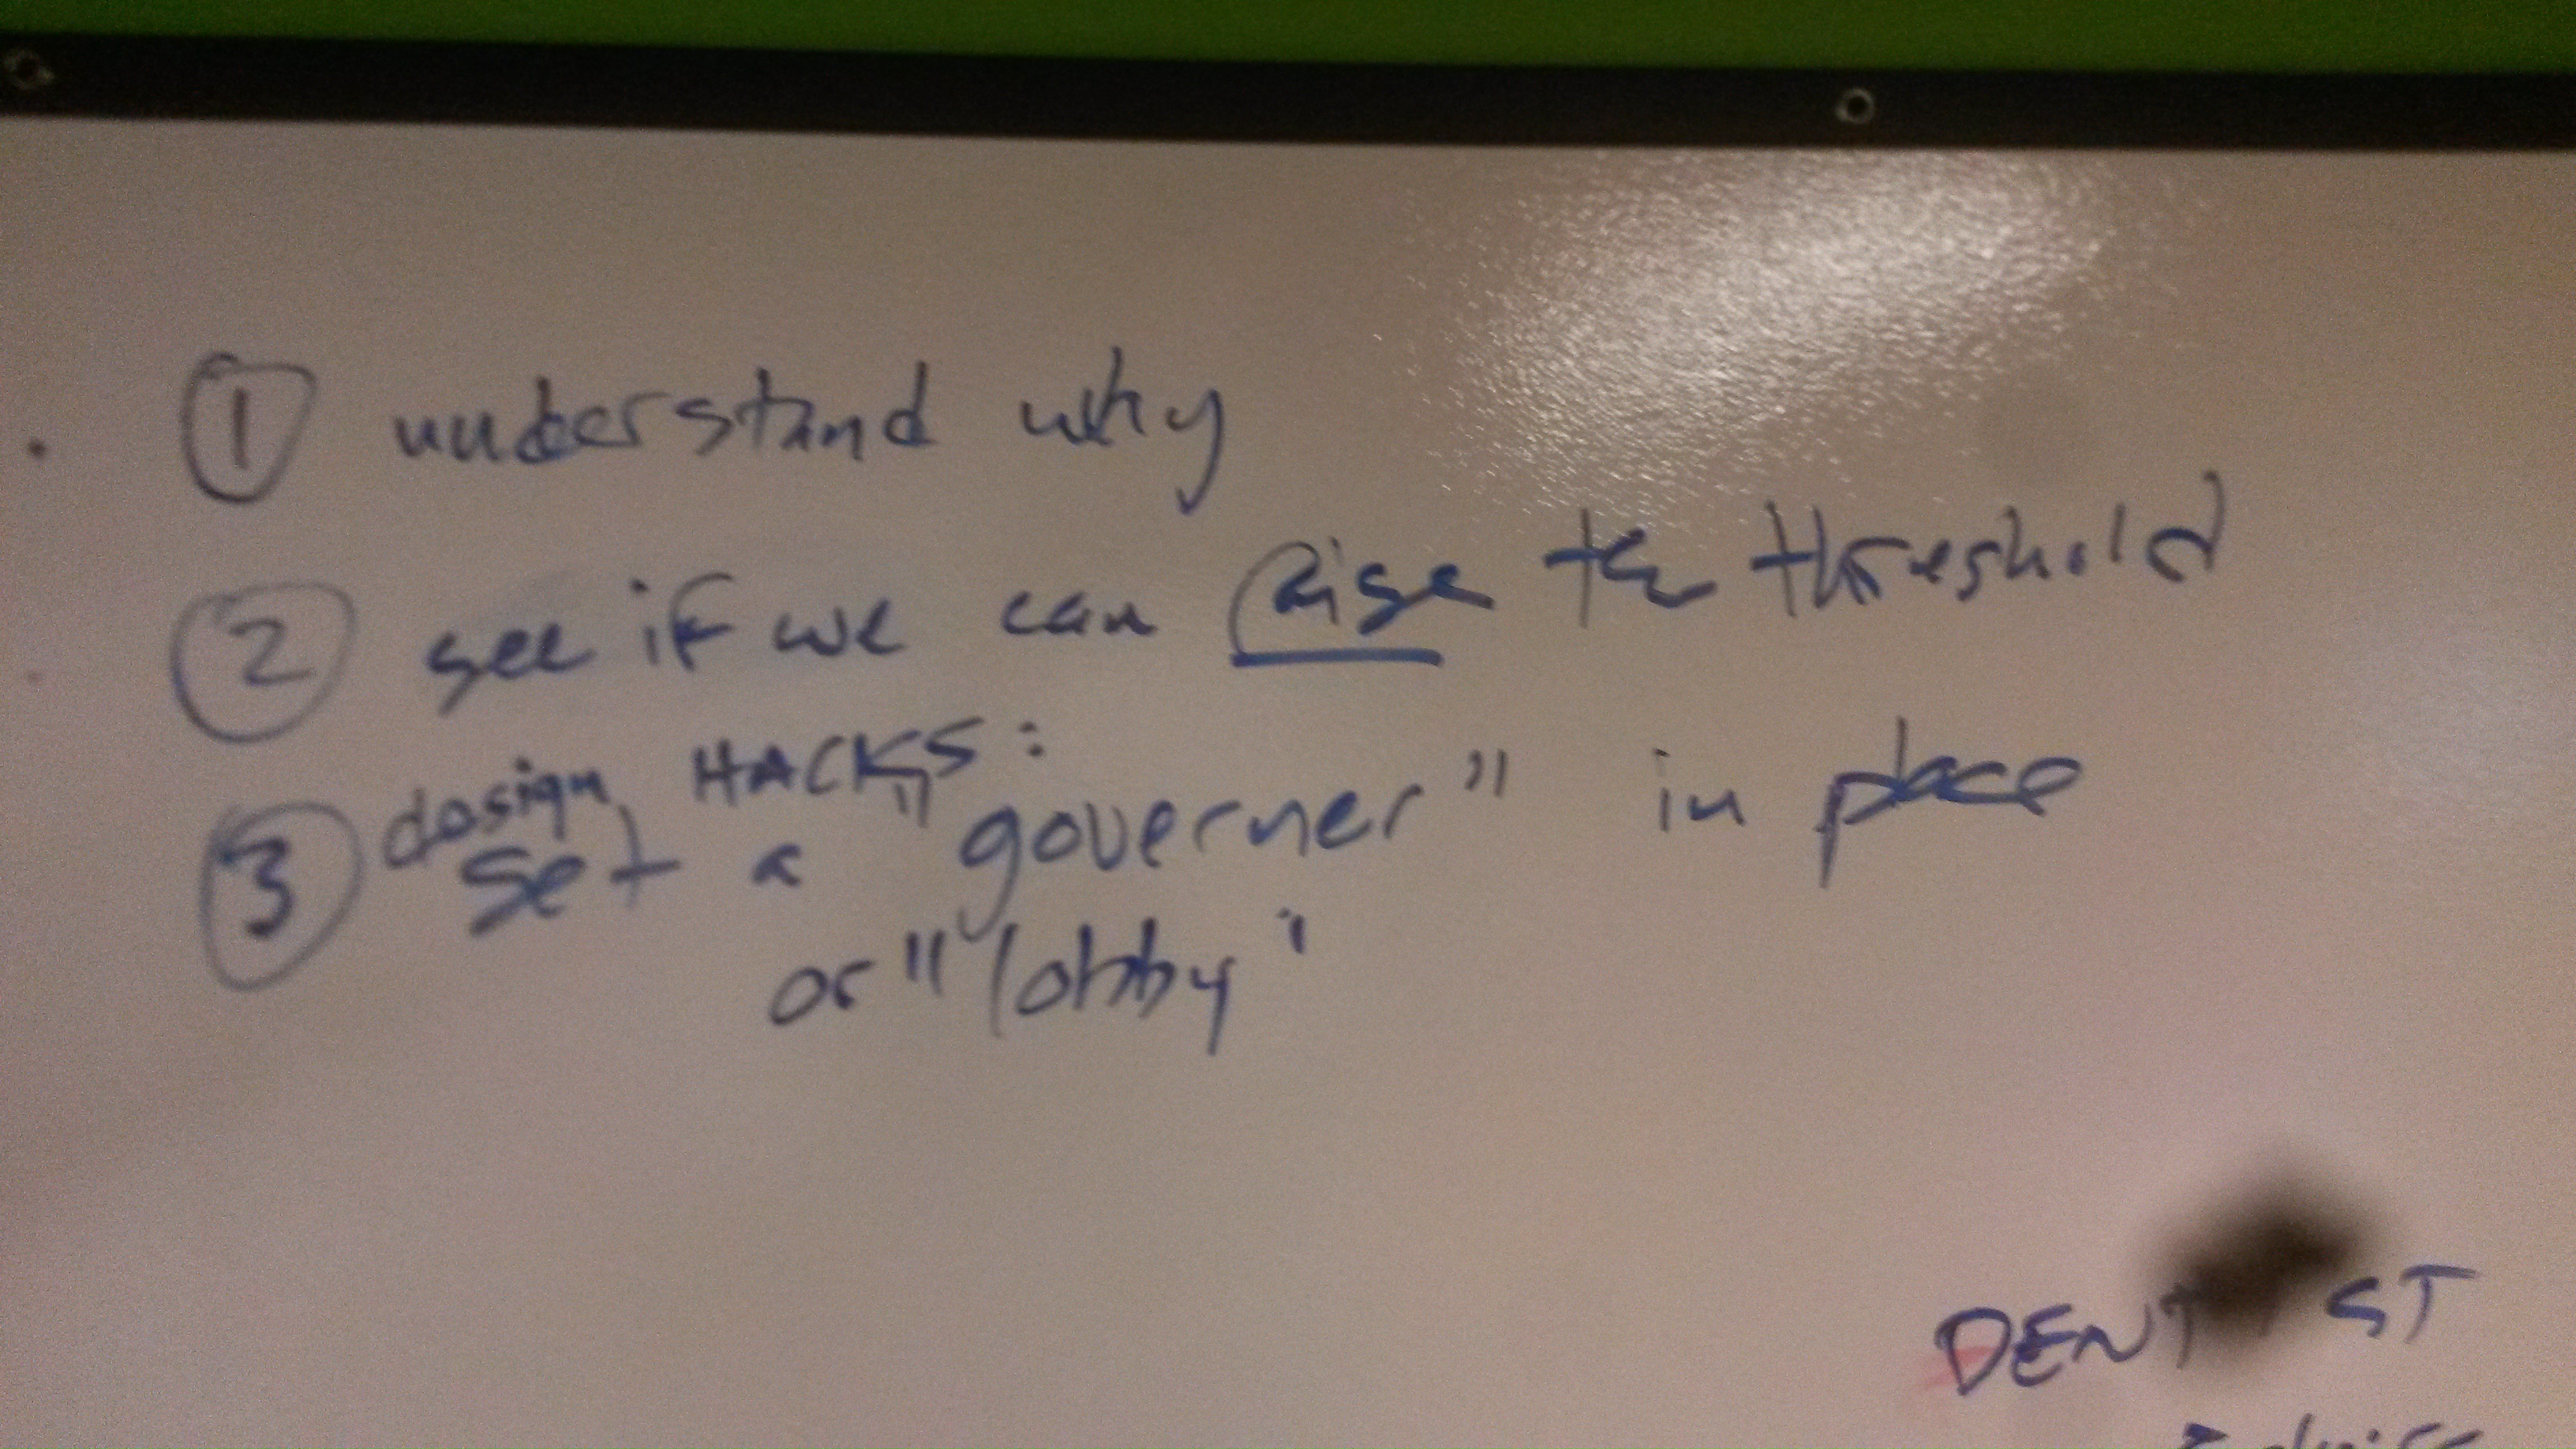 ① understand why
② see if we can rise the threshold
design HACKS:
③ set a "governer" in place
or "lobby"
DENTIST